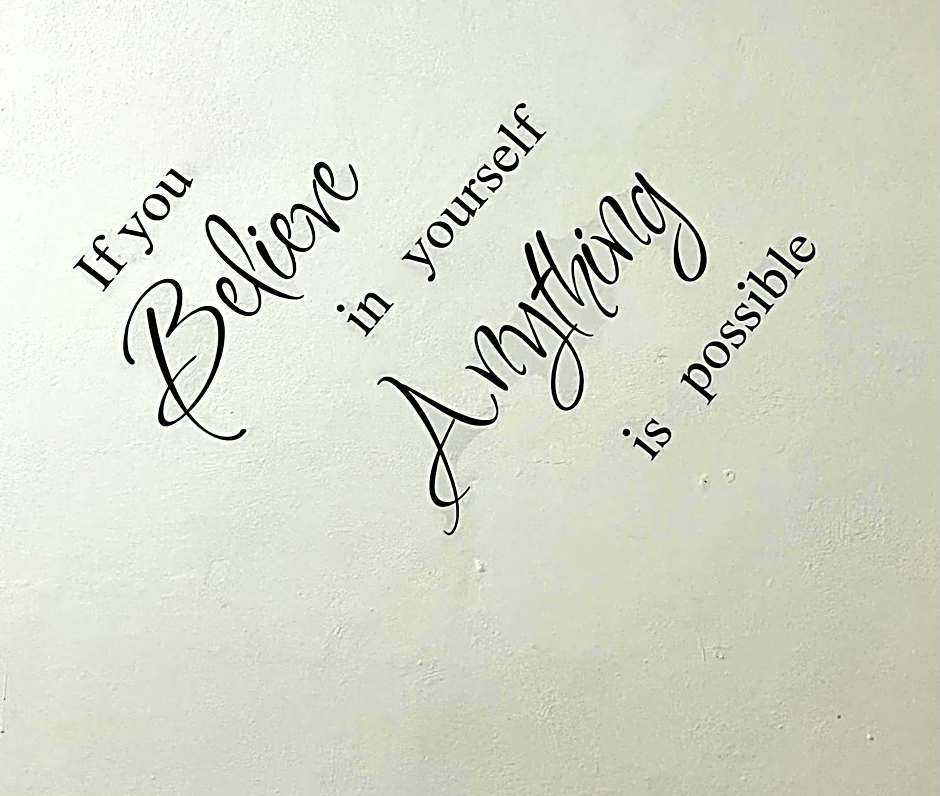 If you
Believe
in yourself
Anything
is possible